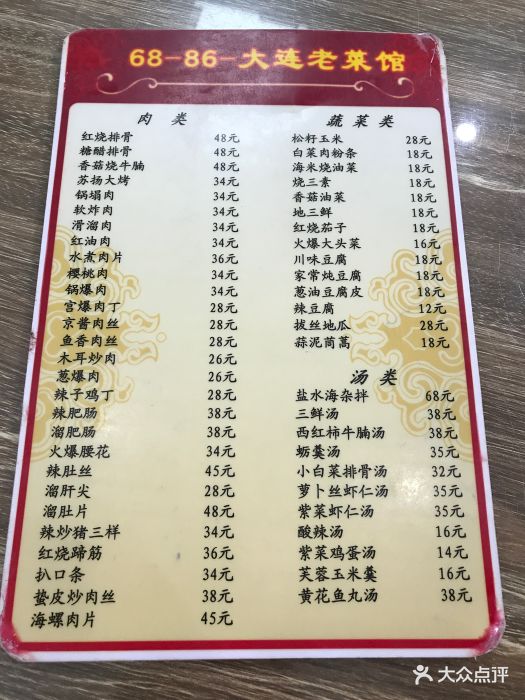 68-86-大连老菜馆
肉 类
红烧排骨 48元
糖醋排骨 48元
香菇烧牛腩 48元
苏扬大烤 34元
锅塌肉 34元
软炸肉 34元
滑溜肉 34元
红油肉 34元
水煮肉片 36元
樱桃肉 34元
锅爆肉 34元
宫爆肉丁 28元
京酱肉丝 28元
鱼香肉丝 28元
木耳炒肉 26元
葱爆肉 26元
辣子鸡丁 28元
辣肥肠 38元
溜肥肠 38元
火爆腰花 34元
辣肚丝 45元
溜肝尖 28元
溜肚片 48元
辣炒猪三样 34元
红烧蹄筋 36元
扒口条 34元
蛰皮炒肉丝 38元
海螺肉片 45元
蔬菜类
松籽玉米 28元
白菜肉粉条 18元
海米烧油菜 18元
烧三素 18元
香菇油菜 18元
地三鲜 18元
红烧茄子 18元
火爆大头菜 16元
川味豆腐 18元
家常炖豆腐 18元
葱油豆腐皮 18元
辣豆腐 12元
拔丝地瓜 28元
蒜泥茼蒿 18元
汤 类
盐水海杂拌 68元
三鲜汤 38元
西红柿牛腩汤 38元
蛎羹汤 35元
小白菜排骨汤 32元
萝卜丝虾仁汤 35元
紫菜虾仁汤 35元
酸辣汤 16元
紫菜鸡蛋汤 14元
芙蓉玉米羹 16元
黄花鱼丸汤 38元
大众点评